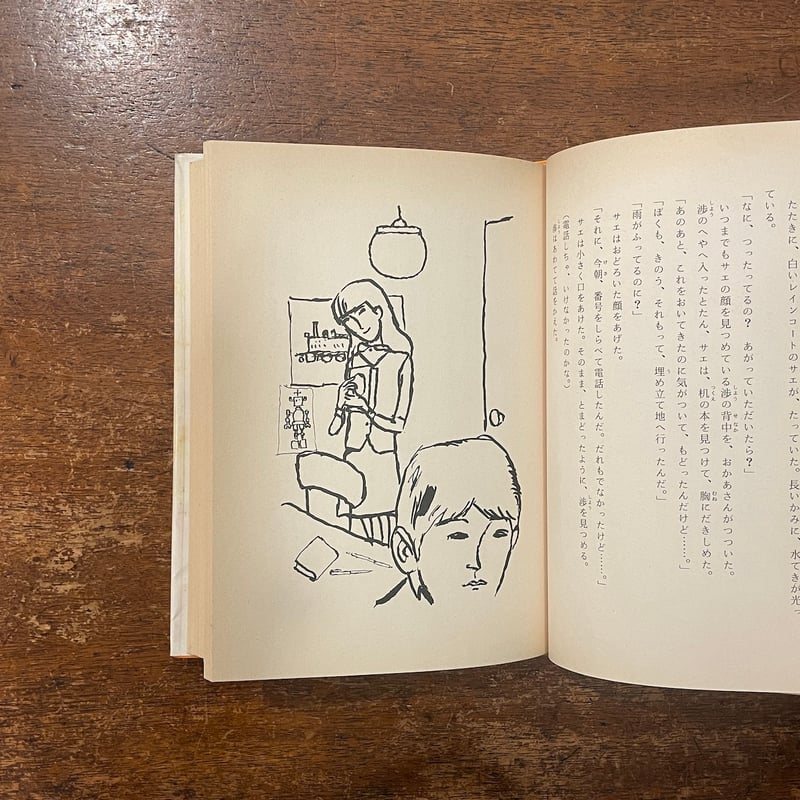 たたきに、白いレインコートのサエが、たっていた。長いかみに、水てきが光っ
ている。
「なに、つったってるの？　あがっていただいたら？」
いつまでもサエの顔を見つめている渉の背中を、おかあさんがつついた。
渉のへやへ入ったとたん、サエは、机の本を見つけて、胸にだきしめた。
「あのあと、これをおいてきたのに気がついて、もどったんだけど……。」
「ぼくも、きのう、それもって、埋め立て地へ行ったんだ。」
「雨がふってるのに？」
サエはおどろいた顔をあげた。
「それに、今朝、番号をしらべて電話したんだ。だれもでなかったけど……。」
サエは小さく口をあけた。そのまま、とまどったように、渉を見つめる。
（電話しちゃ、いけなかったのかな。）
渉はあわてて話をかえた。